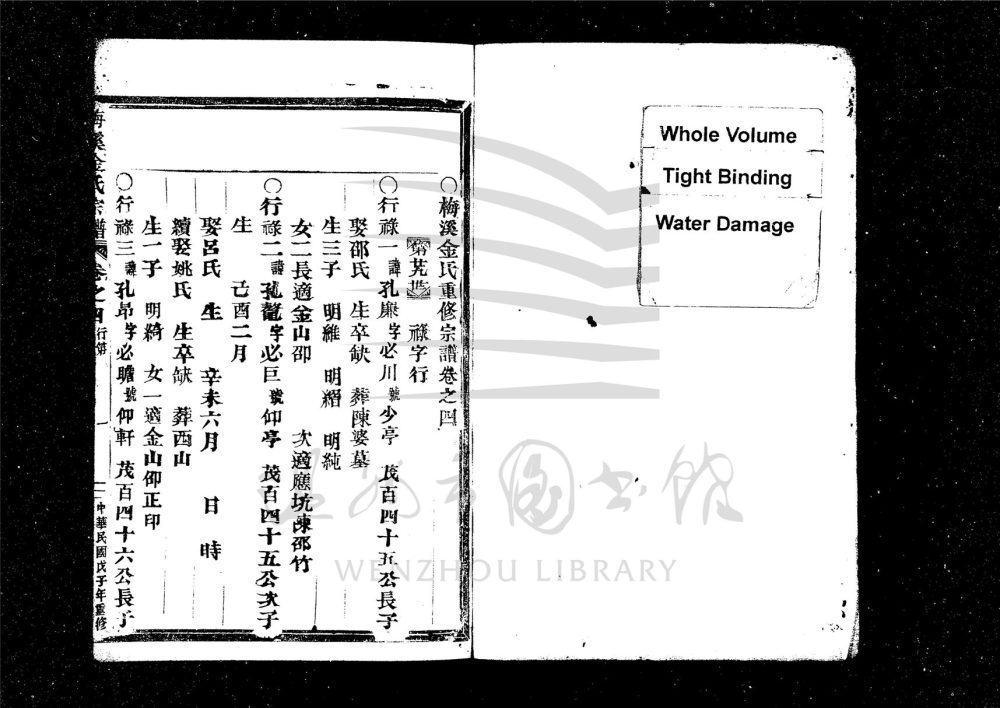 Whole Volume
Tight Binding
Water Damage
梅溪金氏重修宗譜卷之四
祿字行
行祿一 諱孔廉 字必川 號少亭 茂百四十五公長子
娶邵氏 生卒缺 葬陳婆墓
生三子 明維 明縉 明純
女二長適金山卲 次適應坑陳邵竹
行祿二 諱孔龍 字必巨 號仰亭 茂百四十五公次子
生 己酉二月
娶呂氏 生 辛未六月 日 時
續娶姚氏 生卒缺 葬西山
生一子 明綺 女一適金山卲正印
行祿三 諱孔昂 字必瞻 號仰軒 茂百四十六公長子
梅溪金氏宗譜 卷之四 行第 一 中華民國戊子年重修
溫州市圖書館
WENZHOU LIBRARY